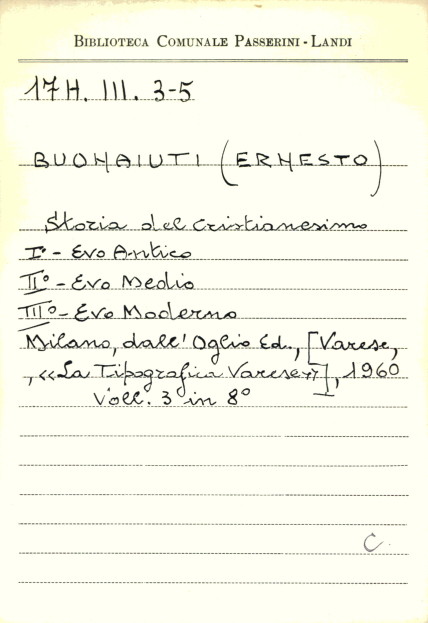 BIBLIOTECA COMUNALE PASSERINI - LANDI
17H. III. 3-5
BUONAIUTI (ERNESTO)
Storia del cristianesimo
I° - Evo Antico
II° - Evo Medio
III° - Evo Moderno
Milano, dall' Oglio Ed., [Varese,
, «La Tipografica Varese»], 1960
Voll. 3 in 8°
C.